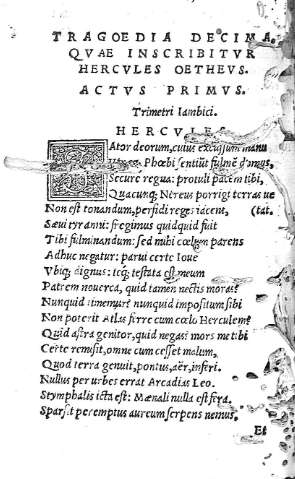 TRAGOEDIA DECIMA,
QVAE INSCRIBITVR
HERCVLES OETHEVS.
ACTVS PRIMUS.
Trimetri Iambici.
HERCVLES
Ator deorum, cuius excussum manu
Vtraq; Phœbi sentiũt fulmẽ domus,
Secure regna: protuli pacem tibi,
Quacunq; Nereus porrigi terras ue
Non est tonandum, perfidi reges iacent, (tat.
Sæui tyranni: fregimus quidquid fuit
Tibi fulminandum: sed mihi cœlum parens
Adhuc negatur: parui certe Ioue
Vbiq; dignus: teq; testata est meum
Patrem nouerca, quid tamen nectis moras?
Nunquid timemur? nunquid impositum sibi
Non poterit Atlas ferre cum cœlo Herculem?
Quid astra genitor, quid negas? mors me tibi
Certe remisit, omne cum cesset malum,
Quod terra genuit, pontus, aër, inferi.
Nullus per urbes errat Arcadias Leo.
Stymphalis icta est: Mænali nulla est fera.
Sparsit peremptus aureum serpens nemus.
Et